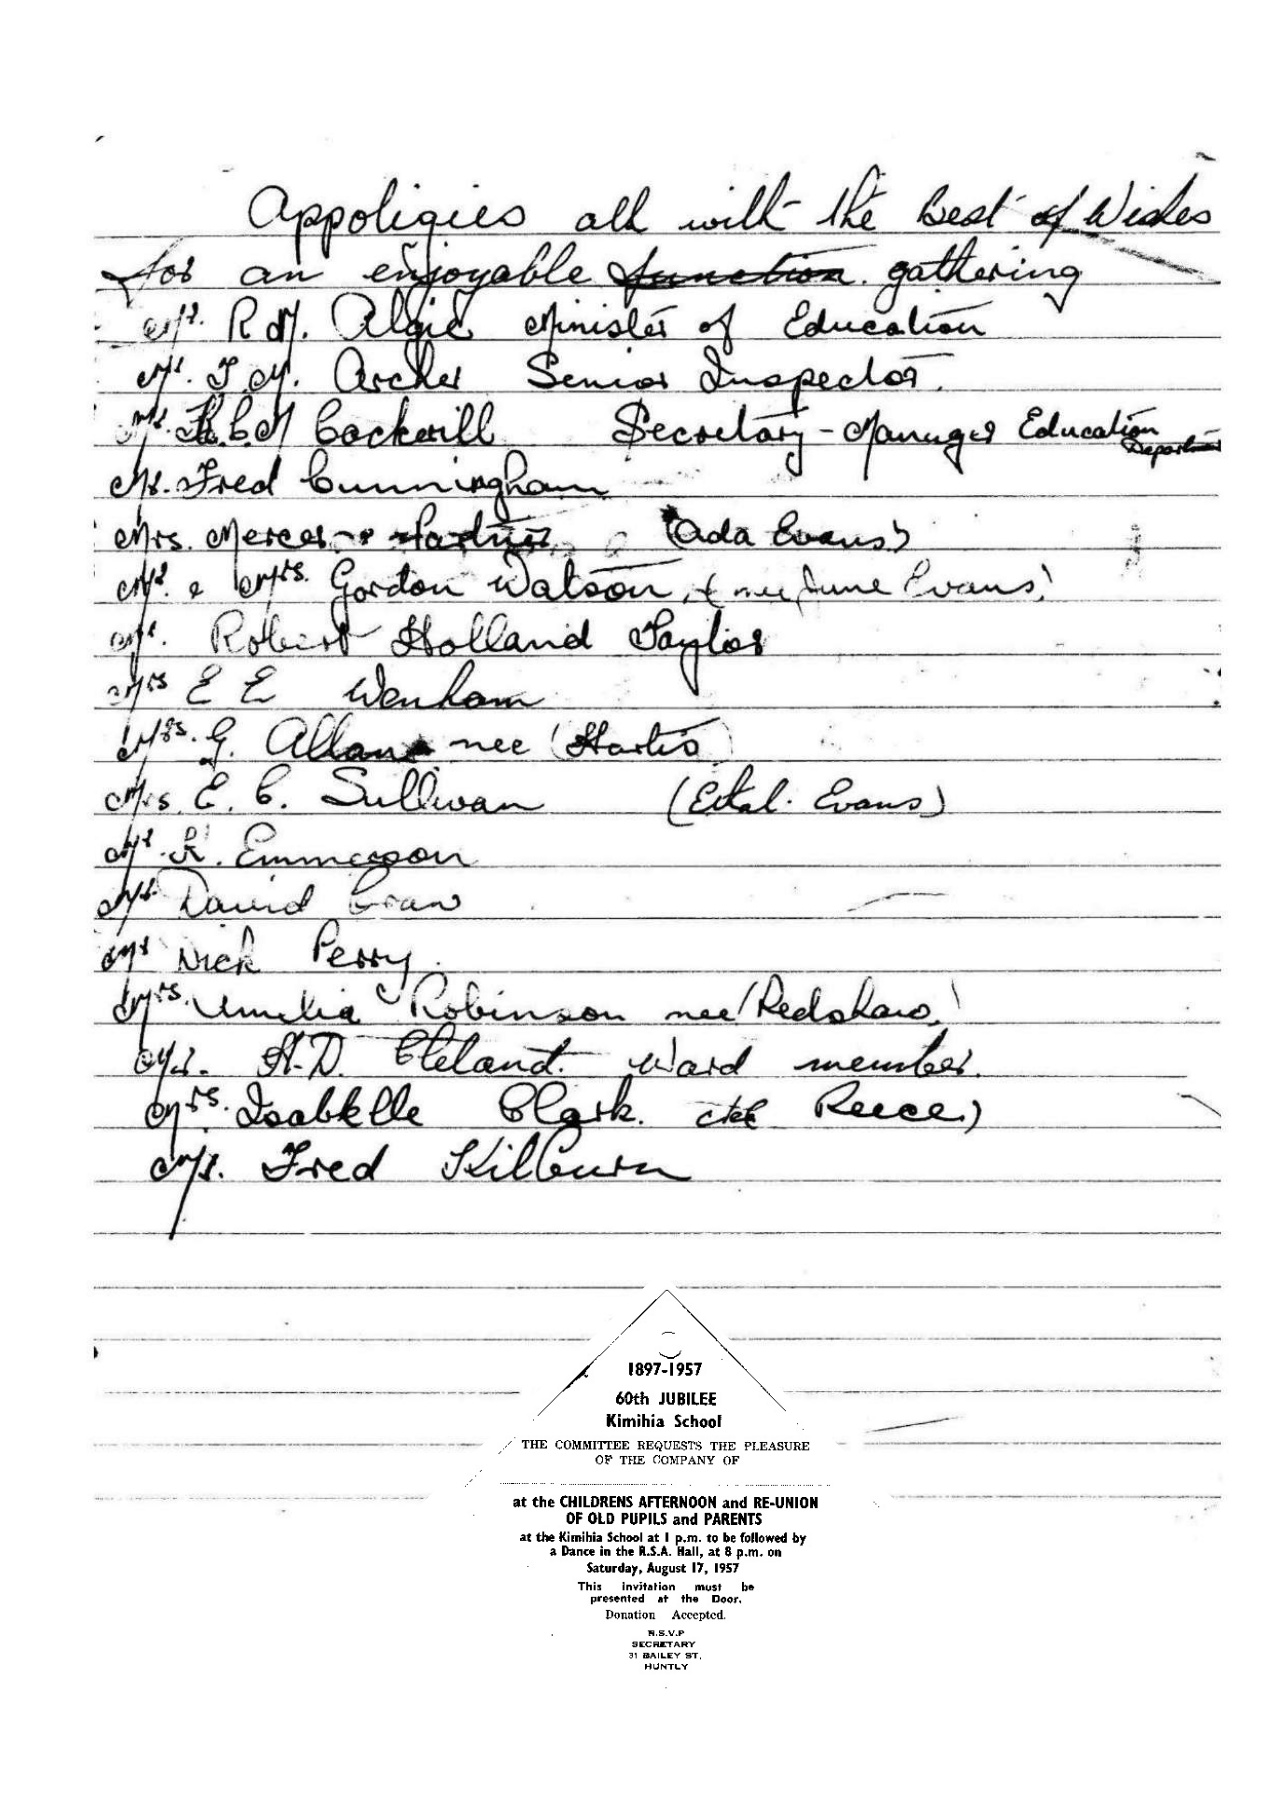 Appoligies all with the Best of Wishes
for an enjoyable function gathering
Mr. R M. Algie Minister of Education
Mr. T. M. Archer Senior Inspector.
Mr. Cockerill Secretary-Manager Education
Mr. Fred Cunningham
Mrs. Mercer (Ada Evans)
Mr. & Mrs. Gordon Watson, (nee June Evans)
Mr. Robert Holland Taylor
Mrs E E Wenham
Mrs. G. Allan nee (Harris)
Mrs. E. C. Sullivan Evans)
Mr. K. Emmerson
Mr David
Mr Nick Perry.
Mrs. Amelia Robinson nee (Redshaw)
Mr. A.D. Cleland. Ward member.
Mrs. Isabelle Clark. Reece)
Mr. Fred Kilburn
1897-1957
60th JUBILEE
Kimihia School
THE COMMITTEE REQUESTS THE PLEASURE
OF THE COMPANY OF
at the CHILDRENS AFTERNOON and RE-UNION
OF OLD PUPILS and PARENTS
at the Kimihia School at 1 p.m. to be followed by
a Dance in the R.S.A. Hall, at 8 p.m. on
Saturday, August 17, 1957
This invitation must be
presented at the Door.
Donation Accepted.
R.S.V.P
SECRETARY
31 BAILEY ST,
HUNTLY